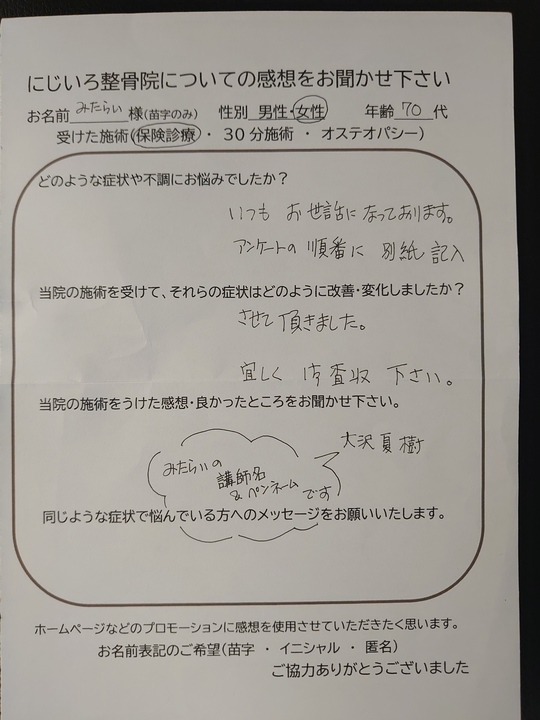 にじいろ整骨院についての感想をお聞かせ下さい
お名前 みたらい 様(苗字のみ) 性別 男性・女性 年齢 70 代
受けた施術(保険診療・30分施術・オステオパシー)
どのような症状や不調にお悩みでしたか?
いつも お世話になっております。
アンケートの 順番に 別紙 記入
当院の施術を受けて、それらの症状はどのように改善・変化しましたか?
させて 頂きました。
宜しく 御査収 下さい。
当院の施術をうけた感想・良かったところをお聞かせ下さい。
大沢夏樹
みたらいの
講師名
& ペンネーム
です
同じような症状で悩んでいる方へのメッセージをお願いいたします。
ホームページなどのプロモーションに感想を使用させていただきたく思います。
お名前表記のご希望(苗字 ・ イニシャル ・ 匿名)
ご協力ありがとうございました